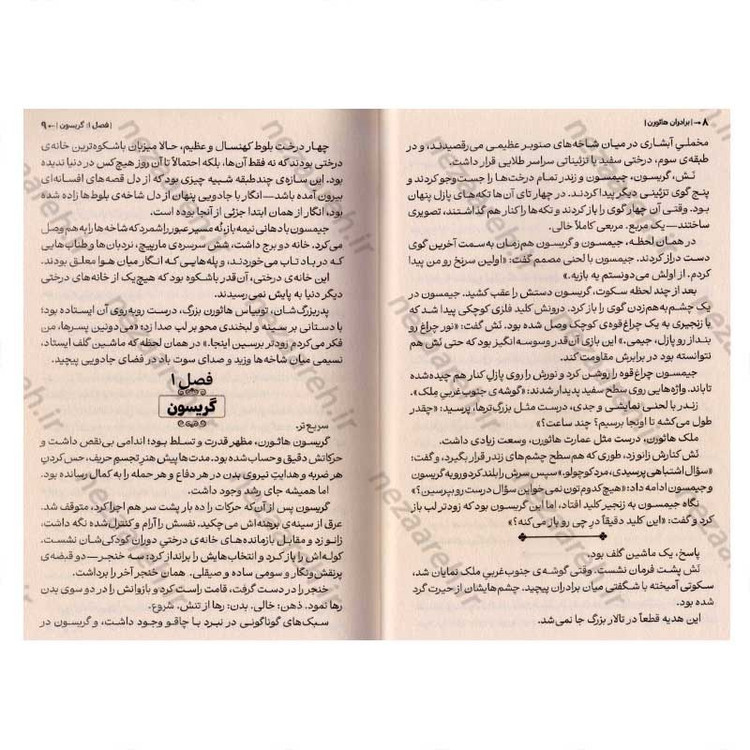 ۸ →| برادران هاثورن |
مخملیِ آبشاری در میان شاخه‌های صنوبر عظیمی می‌رقصیدند، و در
طبقه‌ی سوم، درختی سفید با تزئیناتی سراسر طلایی قرار داشت.
نَش، گریسون، جیمسون و زندر تمام درخت‌ها را جست‌وجو کردند و
پنج گوی تزئینی دیگر پیدا کردند. در چهار تای آن‌ها تکه‌های پازل پنهان
بود. وقتی آن چهار گوی را باز کردند و تکه‌ها را کنار هم گذاشتند، تصویری
ساختند—یک مربع. مربعی کاملاً خالی.
در همان لحظه، جیمسون و گریسون هم‌زمان به سمت آخرین گوی
دست دراز کردند. جیمسون با لحنی مصمم گفت: «اولین سرنخ رو من پیدا
کردم. از اولش می‌دونستم یه بازیه.»
بعد از چند لحظه سکوت، گریسون دستش را عقب کشید. جیمسون در
یک چشم‌به‌هم‌زدن گوی را باز کرد. درونش کلید فلزی کوچکی پیدا شد که
با زنجیری به یک چراغ‌قوه‌ی کوچک وصل شده بود. نَش گفت: «نور چراغ رو
بنداز رو پازل، جیمی.» این بازی آن‌قدر وسوسه‌انگیز بود که حتی نَش هم
نتوانسته بود در برابرش مقاومت کند.
جیمسون چراغ‌قوه را روشن کرد و نورش را روی پازلِ کنار هم چیده‌شده
تاباند. واژه‌هایی روی سطح سفید پدیدار شدند: «گوشه‌ی جنوب‌غربیِ ملک.»
زندر با لحنی نمایشی و جدی، درست مثل بزرگ‌ترها، پرسید: «چقدر
طول می‌کشه تا اونجا برسیم؟ چند ساعت؟»
ملک هاثورن، درست مثل عمارت هاثورن، وسعت زیادی داشت.
نَش کنارش زانو زد، طوری که هم‌سطح چشم‌های زندر قرار بگیرد، و گفت:
«سؤال اشتباهی پرسیدی، مردِ کوچولو.» سپس سرش را بلند کرد و رو به گریسون
و جیمسون ادامه داد: «هیچ‌کدوم‌تون نمی‌خواین سؤال درست رو بپرسین؟»
نگاه جیمسون به زنجیر کلید افتاد، اما این گریسون بود که زودتر لب باز
کرد و گفت: «این کلید دقیقاً درِ چی رو باز می‌کنه؟»
پاسخ، یک ماشین گلف بود.
نَش پشت فرمان نشست. وقتی گوشه‌ی جنوب‌غربیِ ملک نمایان شد،
سکوتی آمیخته با شگفتی میان برادران پیچید. چشم‌هایشان از حیرت گرد
شده بود.
این هدیه قطعاً در تالار بزرگ جا نمی‌شد.
| فصل ۱: گریسون |← ۹
چهار درخت بلوط کهنسال و عظیم، حالا میزبان باشکوه‌ترین خانه‌ی
درختی بودند که نه فقط آن‌ها، بلکه احتمالاً تا آن روز هیچ‌کس در دنیا ندیده
بود. این سازه‌ی چندطبقه شبیه چیزی بود که از دل قصه‌های افسانه‌ای
بیرون آمده باشد—انگار با جادویی پنهان از دل شاخه‌ی بلوط‌ها زاده شده
بود، انگار از همان ابتدا جزئی از آنجا بوده است.
جیمسون با دهانی نیمه‌باز نُه مسیر عبور را شمرد که شاخه‌ها را به هم وصل
می‌کرد. خانه دو برج داشت، شش سرسره‌ی مارپیچ، نردبان‌ها و طناب‌هایی
که در باد تاب می‌خوردند، و پله‌هایی که انگار میان هوا معلق بودند.
این خانه‌ی درختی، آن‌قدر باشکوه بود که هیچ‌یک از خانه‌های درختی
دیگر دنیا به پایش نمی‌رسیدند.
پدربزرگ‌شان، توبیاس هاثورن بزرگ، درست روبه‌روی آن ایستاده بود؛
با دستانی بر سینه و لبخندی محو بر لب صدا زد: «می‌دونین پسرها، من
فکر می‌کردم زودتر برسین اینجا.» در همان لحظه که ماشین گلف ایستاد،
نسیمی میان شاخه‌ها وزید و صدای سوت باد در فضای جادویی پیچید.
فصل ۱
گریسون
سریع‌تر.
گریسون هاثورن، مظهر قدرت و تسلط بود؛ اندامی بی‌نقص داشت و
حرکاتش دقیق و حساب‌شده بود. مدت‌ها پیش هنرِ تجسم حریف، حس کردنِ
هر ضربه و هدایت نیروی بدن در هر دفاع و هر حمله را به کمال رسانده بود.
اما همیشه جای رشد وجود داشت.
گریسون پس از آن‌که حرکات را ده بار پشت سر هم اجرا کرد، متوقف شد.
عرق از سینه‌ی برهنه‌اش می‌چکید. نفسش را آرام و کنترل‌شده نگه داشت،
زانو زد و مقابل بازمانده‌های خانه‌ی درختیِ دوران کودکی‌شان نشست.
کوله‌اش را باز کرد و انتخاب‌هایش را برانداز کرد: سه خنجر—دو قبضه‌ی
پرنقش‌ونگار و سومی ساده و صیقلی. همان خنجر آخر را برداشت.
خنجر را در دست گرفت، قامت راست کرد و بازوانش را در دو سوی بدن
رها نمود. ذهن: خالی. بدن: رها از تنش، شروع.
سبک‌های گوناگونی در نبرد با چاقو وجود داشت، و گریسون در
nezaafareh.ir